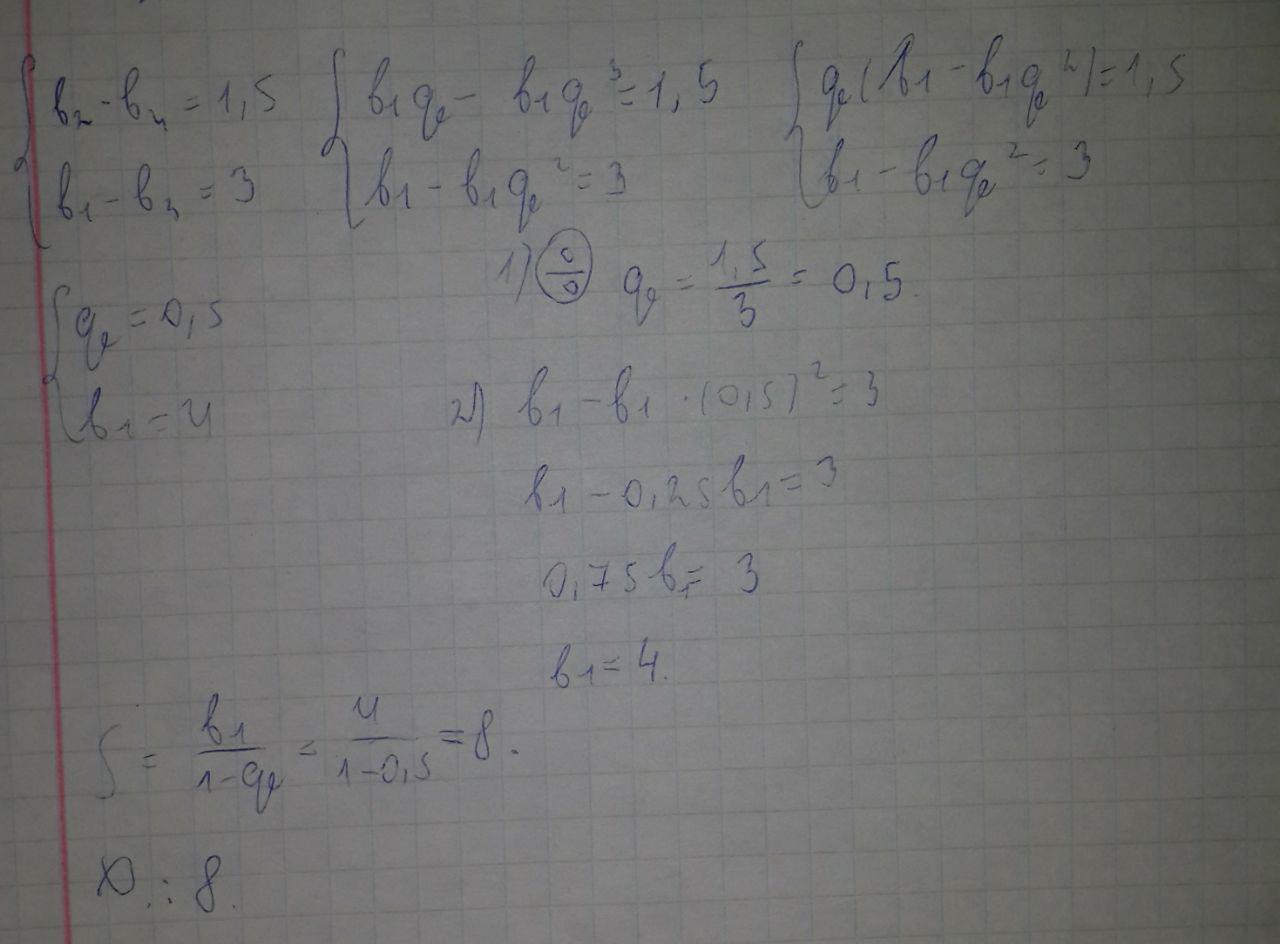 b₂ - b₄ = 1,5   b₁q - b₁q³ = 1,5   q(b₁ - b₁q²) = 1,5
b₁ - b₃ = 3   b₁ - b₁q² = 3   b₁ - b₁q² = 3
1) q = 1,5/3 = 0,5.
q = 0,5
b₁ = 4   2) b₁ - b₁ · (0,5)² = 3
b₁ - 0,25b₁ = 3
0,75b₁ = 3
b₁ = 4.
S = b₁/(1-q) = 4/(1-0,5) = 8.
: 8.